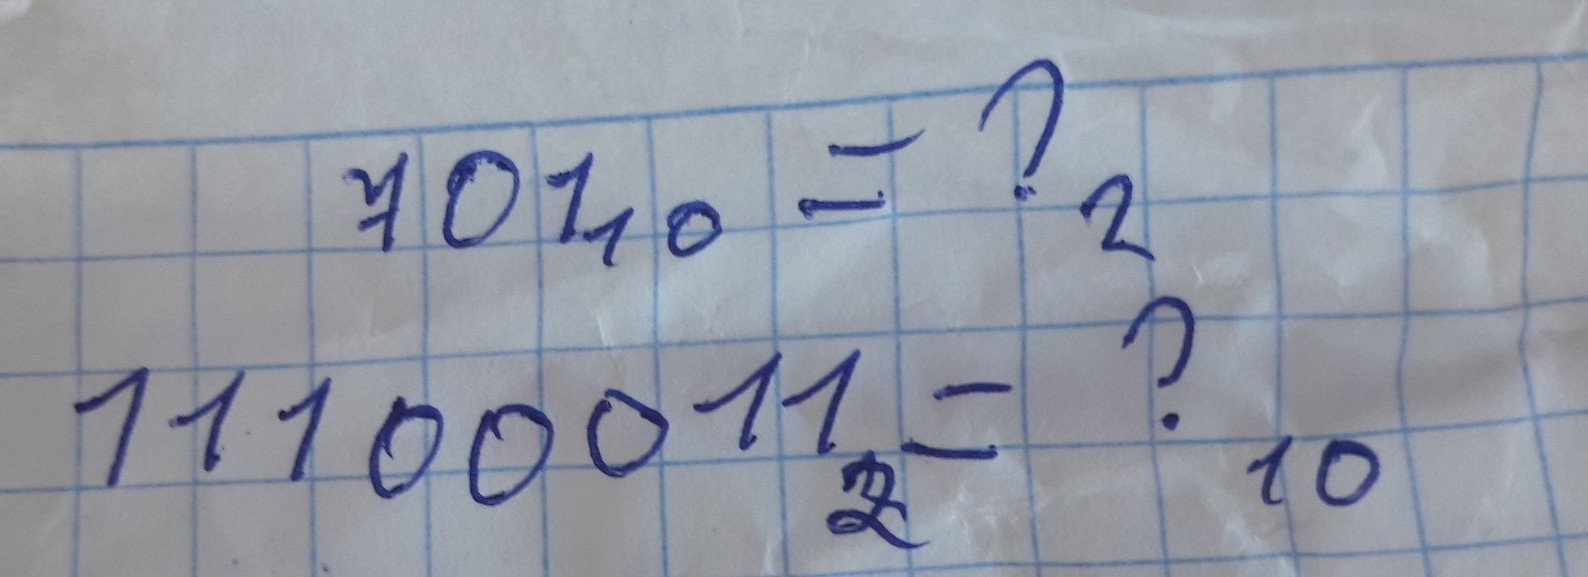 701₁₀ = ?₂
11100011₂ = ?₁₀